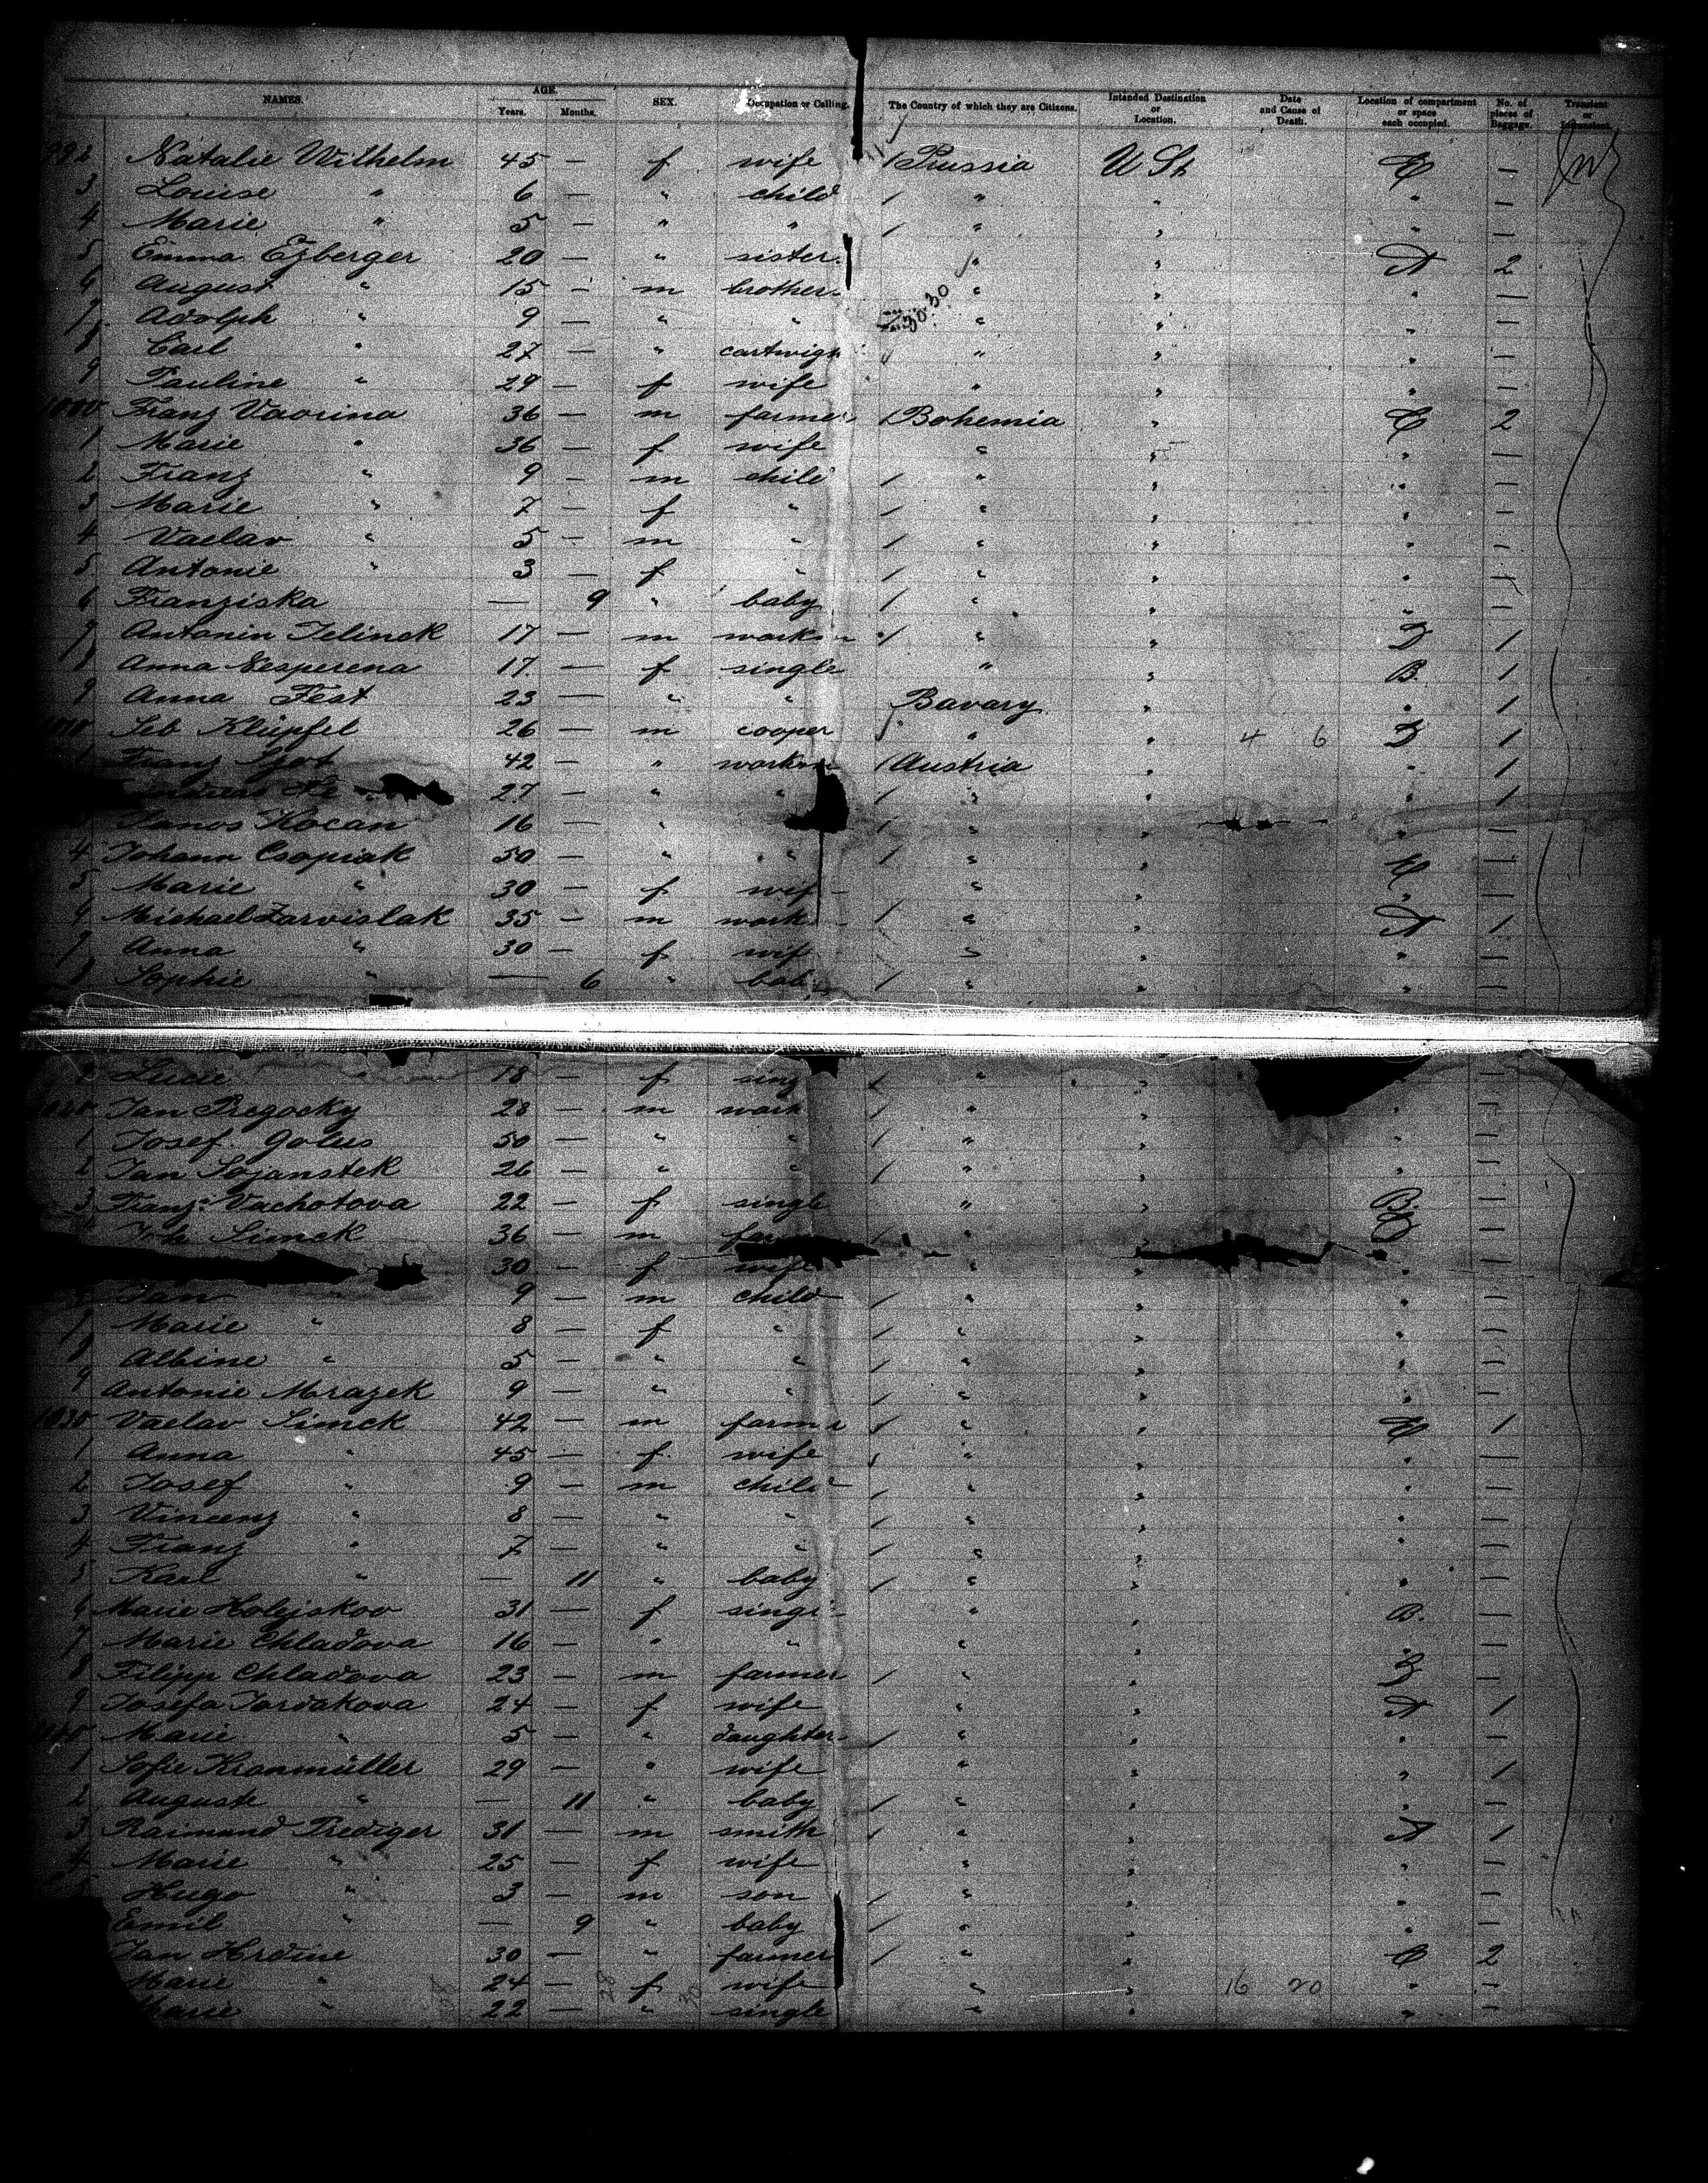 NAMES. AGE. Years. Months. SEX. Occupation or Calling. The Country of which they are Citizens. Intended Destination or Location. Date and Cause of Death. Location of compartment or space each occupied. No. of pieces of Baggage. Transient or
992 Natalie Wilhelm 45 — f wife / Prussia U St. C —
3 Louise " 6 — " child / " " " —
4 Marie " 5 — " " / " " " —
5 Emma Ezberger 20 — " sister " " A 2
6 August " 15 — m brother " " " —
7 Adolph " 9 — " " " " " —
8 Carl " 27 — " " " " —
9 Pauline " 29 — f wife " " " —
1000 Franz Vavrina 36 — m farmer / Bohemia " C 2
1 Marie " 36 — f wife " " " —
2 Franz " 9 — m child / " " " —
3 Marie " 7 — f " / " " " —
4 Vaclav " 5 — m " / " " " —
5 Antonie " 3 — f " / " " " —
6 Franziska — 9 " baby / " " " —
7 Antonin Jelinek 17 — m / " " 1
8 Anna Nesperena 17 — f single " " B. 1
9 Anna Fest 23 — " " Bavary " " 1
1010 Seb Klüpfel 26 — m cooper " " 4 6 1
1 Franz 42 — " / Austria " " 1
27 — " " / " " " 1
Janos Kocan 16 — " / " " " —
4 Johann Csopiak 50 — " " / " " C —
5 Marie " 30 — f " " " —
6 Michael Zarvislak 35 — m / " " A 1
7 Anna " 30 — f " " " —
8 Sophie " — 6 " / " " " —
9 Lucie " 18 — f / " " —
1020 Jan Pregocky 28 — m / " " " —
1 Josef Golus 50 — " " / " " " —
2 Jan Sojanstek 26 — " " / " " " —
3 Franz. Vachotova 22 — f single " " B. —
Joh Simek 36 — m / " " C —
30 — f wife " " " —
Jan " 9 — m child / " " " —
7 Marie " 8 — f " / " " " —
8 Albine " 5 — " " / " " " —
9 Antonie Mrazek 9 — " " / " " " —
1030 Vaclav Simek 42 — m farmer / " " C 1
1 Anna " 45 — f wife " " " —
2 Josef " 9 — m child / " " " —
3 Vincenz " 8 — " " / " " " —
4 Franz " 7 — " " / " " " —
5 Karl " — 11 " baby / " " " —
6 Marie Holejskov 31 — f " " B. —
7 Marie Chladova 16 — " " " " —
8 Filipp Chladova 23 — m farmer / " " —
9 Josefa Jordakova 24 — f wife " " A 1
1040 Marie " 5 — " daughter / " " " —
1 Sofie Kranmüller 29 — " wife " " " 1
2 Auguste " — 11 " baby / " " " —
3 Raimund Prediger 31 — m smith / " " A 1
4 Marie " 25 — f wife " " " —
Hugo " 3 — m son / " " " —
Emil " — 9 " baby / " " " —
Jan Hrdine 30 — " farmer / " " C 2
Marie " 24 — f wife " " 16 20 " —
Marie " 22 — " single " " " —